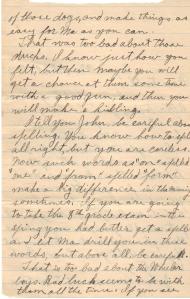 of those dogs, and make things as
easy for Ma as you can.
That was too bad about those
ducks. I know just how you
felt, but then maybe you will
get a chance at them some time
with a good gun and then you
will make a killing.
I tell you John, be careful about
spelling. You know how to spell
all right, but you are careless.
Now such words as "on" spelled
"me" and "from" spelled "form"
make a big difference in the meaning
sometimes. If you are going
to take the 8th grade exam in the
spring you had better get a speller
and let Ma drill you on those
words, but above all, be careful.
That is too bad about the
boys. Bad luck seems to be with
them all the time. If you are